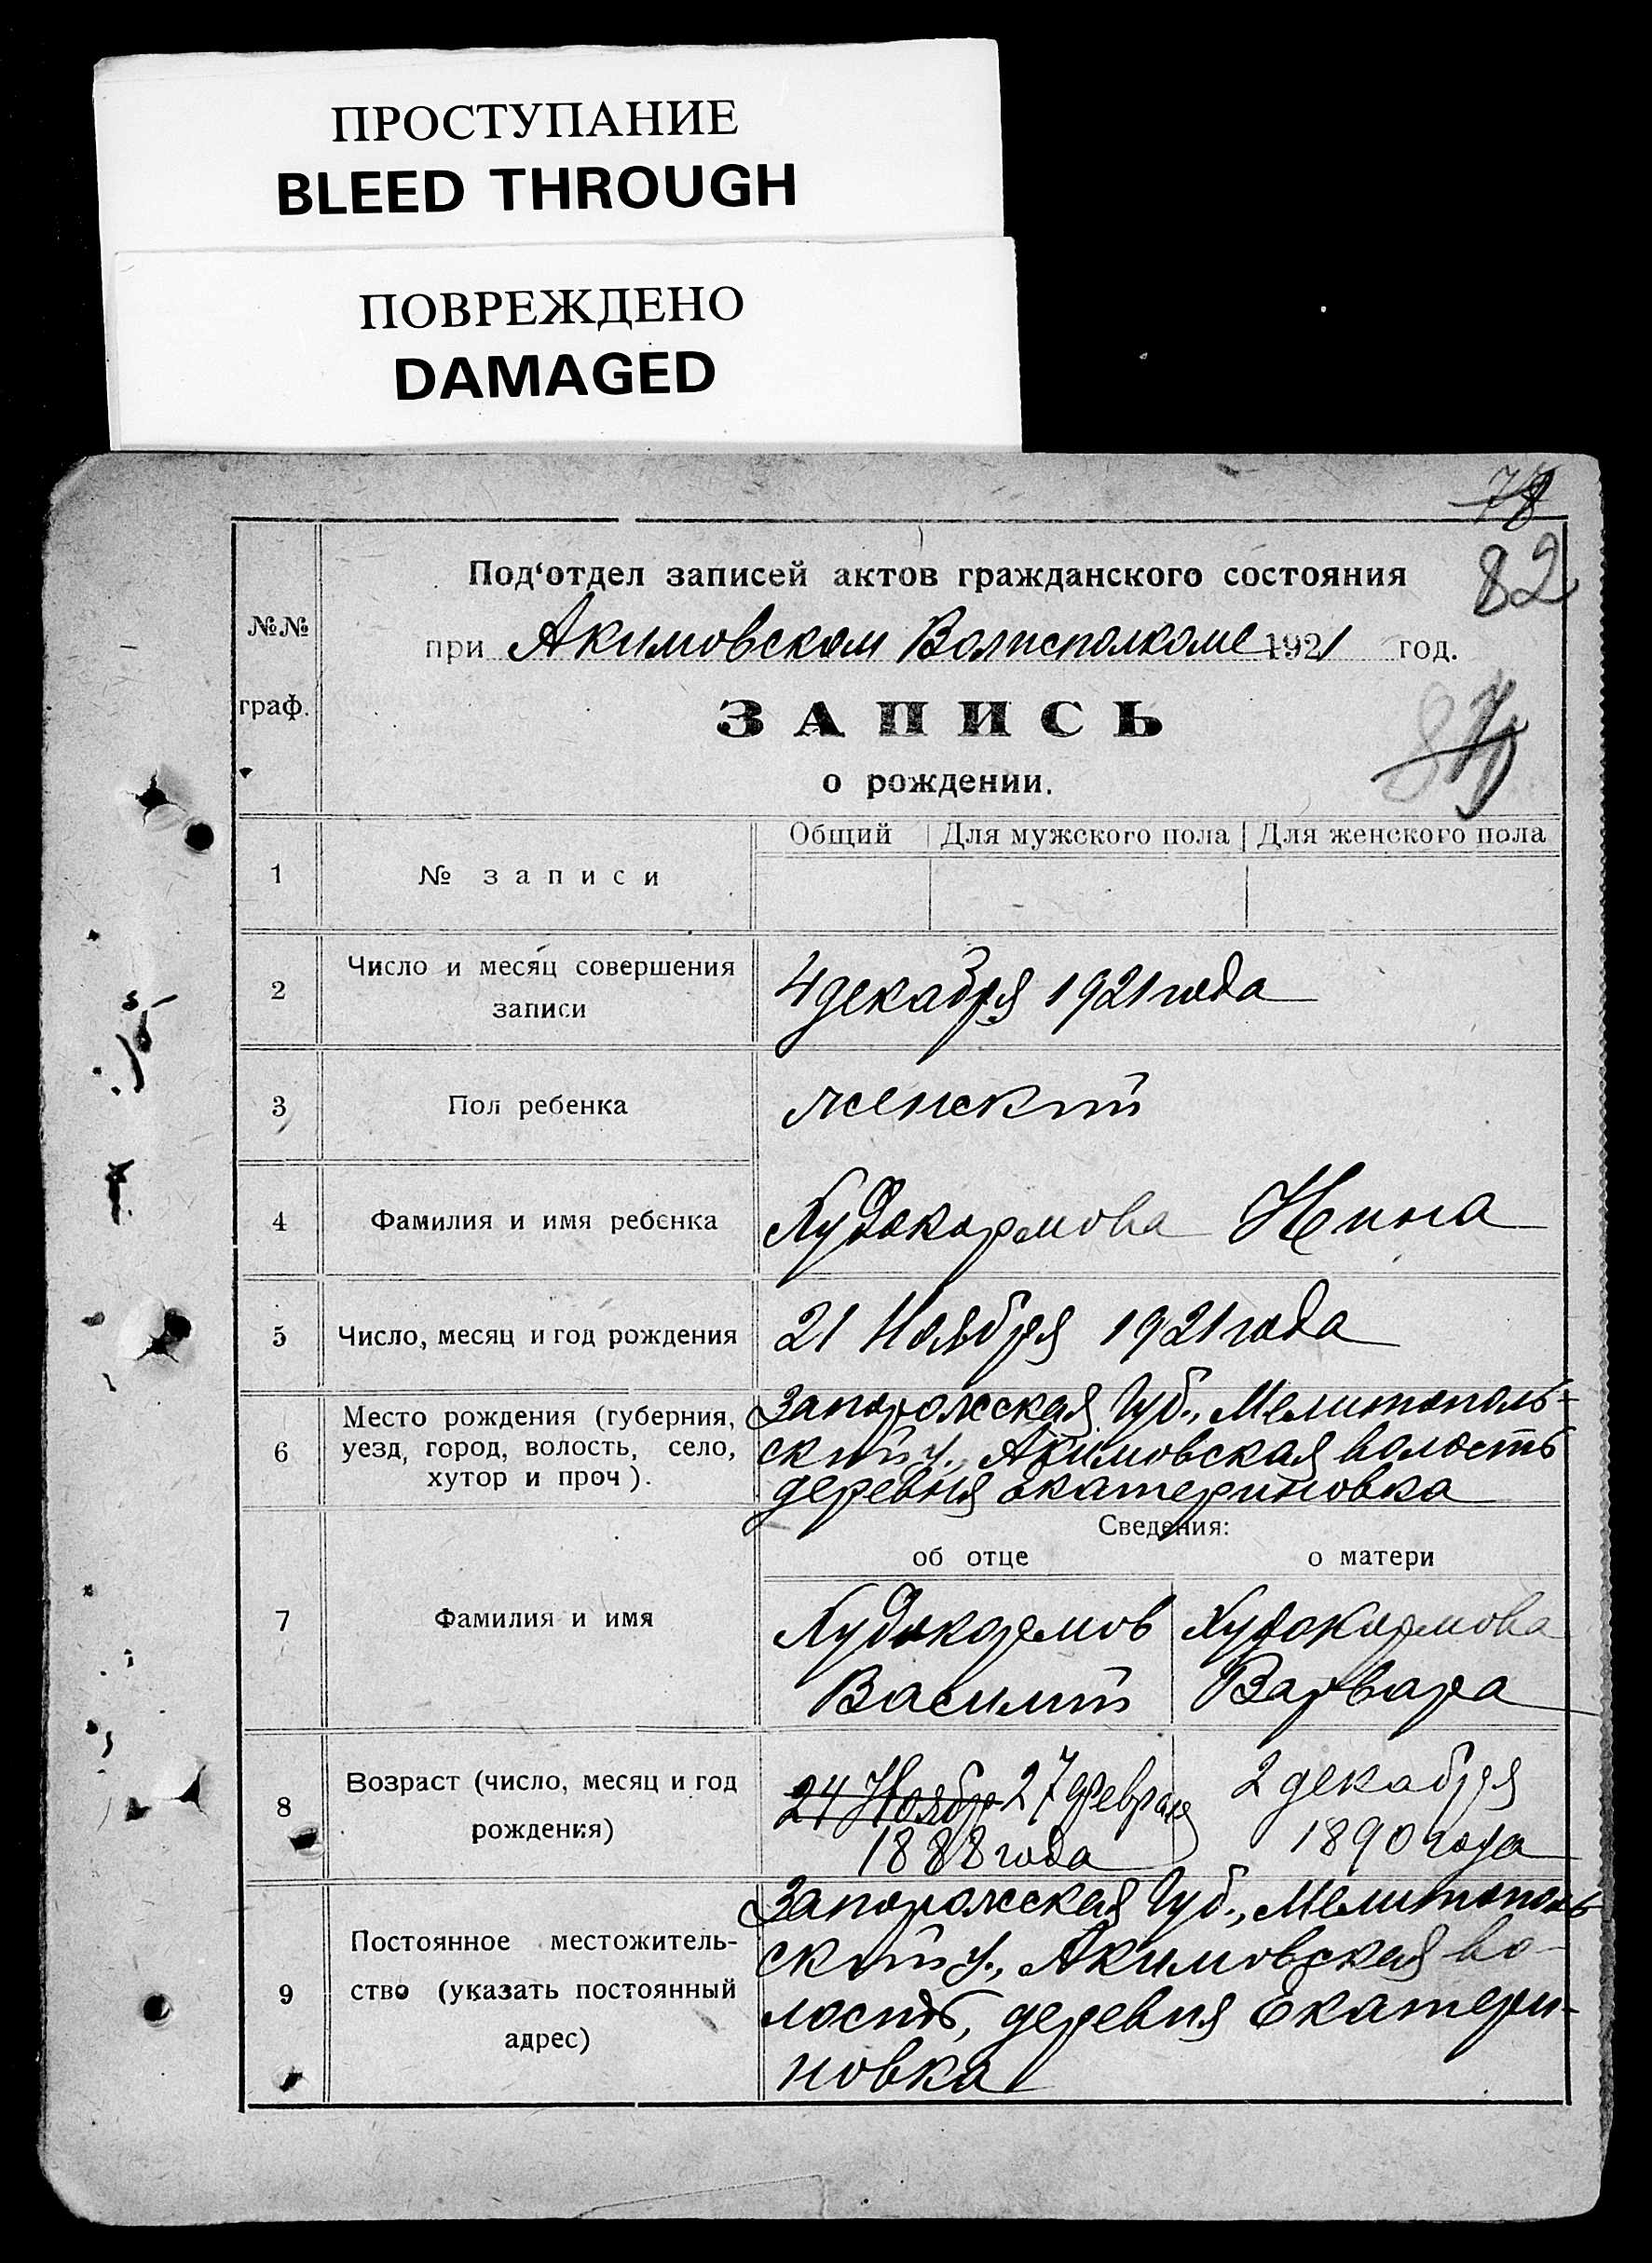 ПРОСТУПАНИЕ
BLEED THROUGH
ПОВРЕЖДЕНО
DAMAGED
78
82
Под‘отдел записей актов гражданского состояния
№№ граф.
при Акимовском Волисполкоме 1921 год.
ЗАПИСЬ
о рождении.
Общий Для мужского пола Для женского пола
1 № записи
2 Число и месяц совершения
записи
4 декабря 1921 года
3 Пол ребенка
женский
4 Фамилия и имя ребенка
Худокормова Нина
5 Число, месяц и год рождения
21 Ноября 1921 года
6 Место рождения (губерния,
уезд, город, волость, село,
хутор и проч).
Запорожская Губ., Мелитополь-
ский у. Акимовская волость
деревня Екатериновка
Сведения:
об отце о матери
7 Фамилия и имя
Худокормов Худокормова
Василий Варвара
8 Возраст (число, месяц и год
рождения)
24 Ноябр 27 февраля
1888 года
2 декабря
1890 года
9 Постоянное местожитель-
ство (указать постоянный
адрес)
Запорожская Губ., Мелитополь
ский у., Акимовская во-
лость, деревня Екатери-
новка